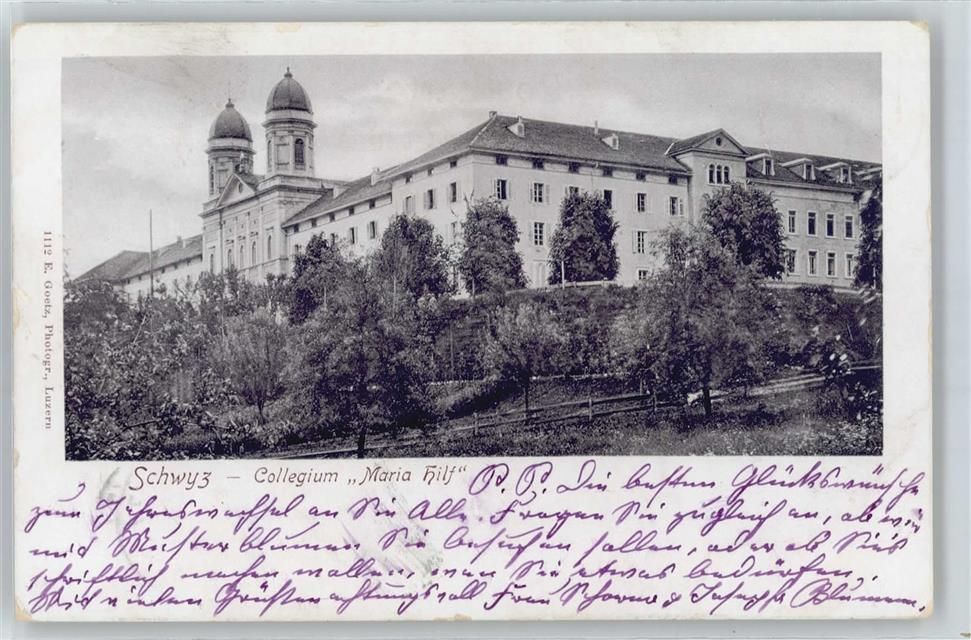 1112 E. Goetz, Photogr., Luzern
Schwyz – Collegium „Maria Hilf“ P. P. Die besten Glückswünsche
zum Jahreswechsel an Sie Alle. Fragen Sie zugleich an, ob wir
mit Musterblumen Sie besuchen sollen, oder ob Sie's
schriftlich machen wollen, wen Sie etwas bedürfen.
Mit vielen Grüssen achtungsvoll Frau & Josepha Blumen.